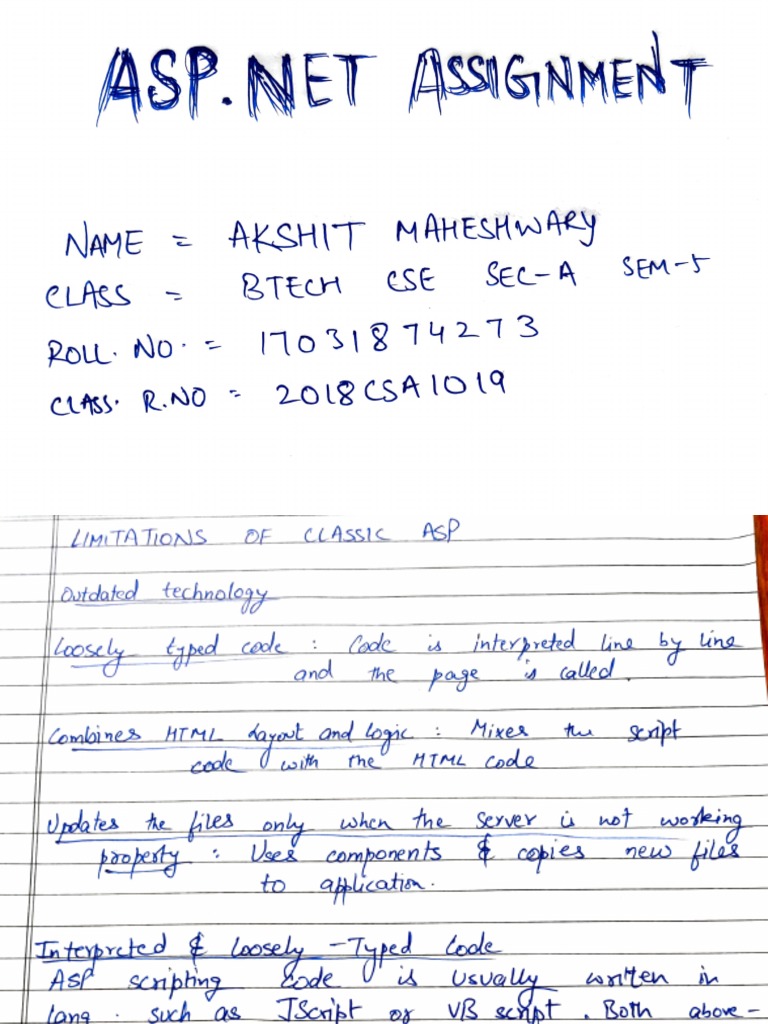 ASP.NET ASSIGNMENT
NAME = AKSHIT MAHESHWARY
CLASS = BTECH CSE SEC-A SEM-5
ROLL. NO. = 17031874273
CLASS. R.NO = 2018CSA1019
LIMITATIONS OF CLASSIC ASP
Outdated technology
Loosely typed code : Code is interpreted line by line
and the page is called.
Combines HTML Layout and Logic : Mixes the script
code with the HTML code
Updates the files only when the server is not working
property : Uses components & copies new files
to application.
Interpreted & Loosely-Typed Code
ASP scripting code is usually written in
lang. such as JScript or VB script. Both above-